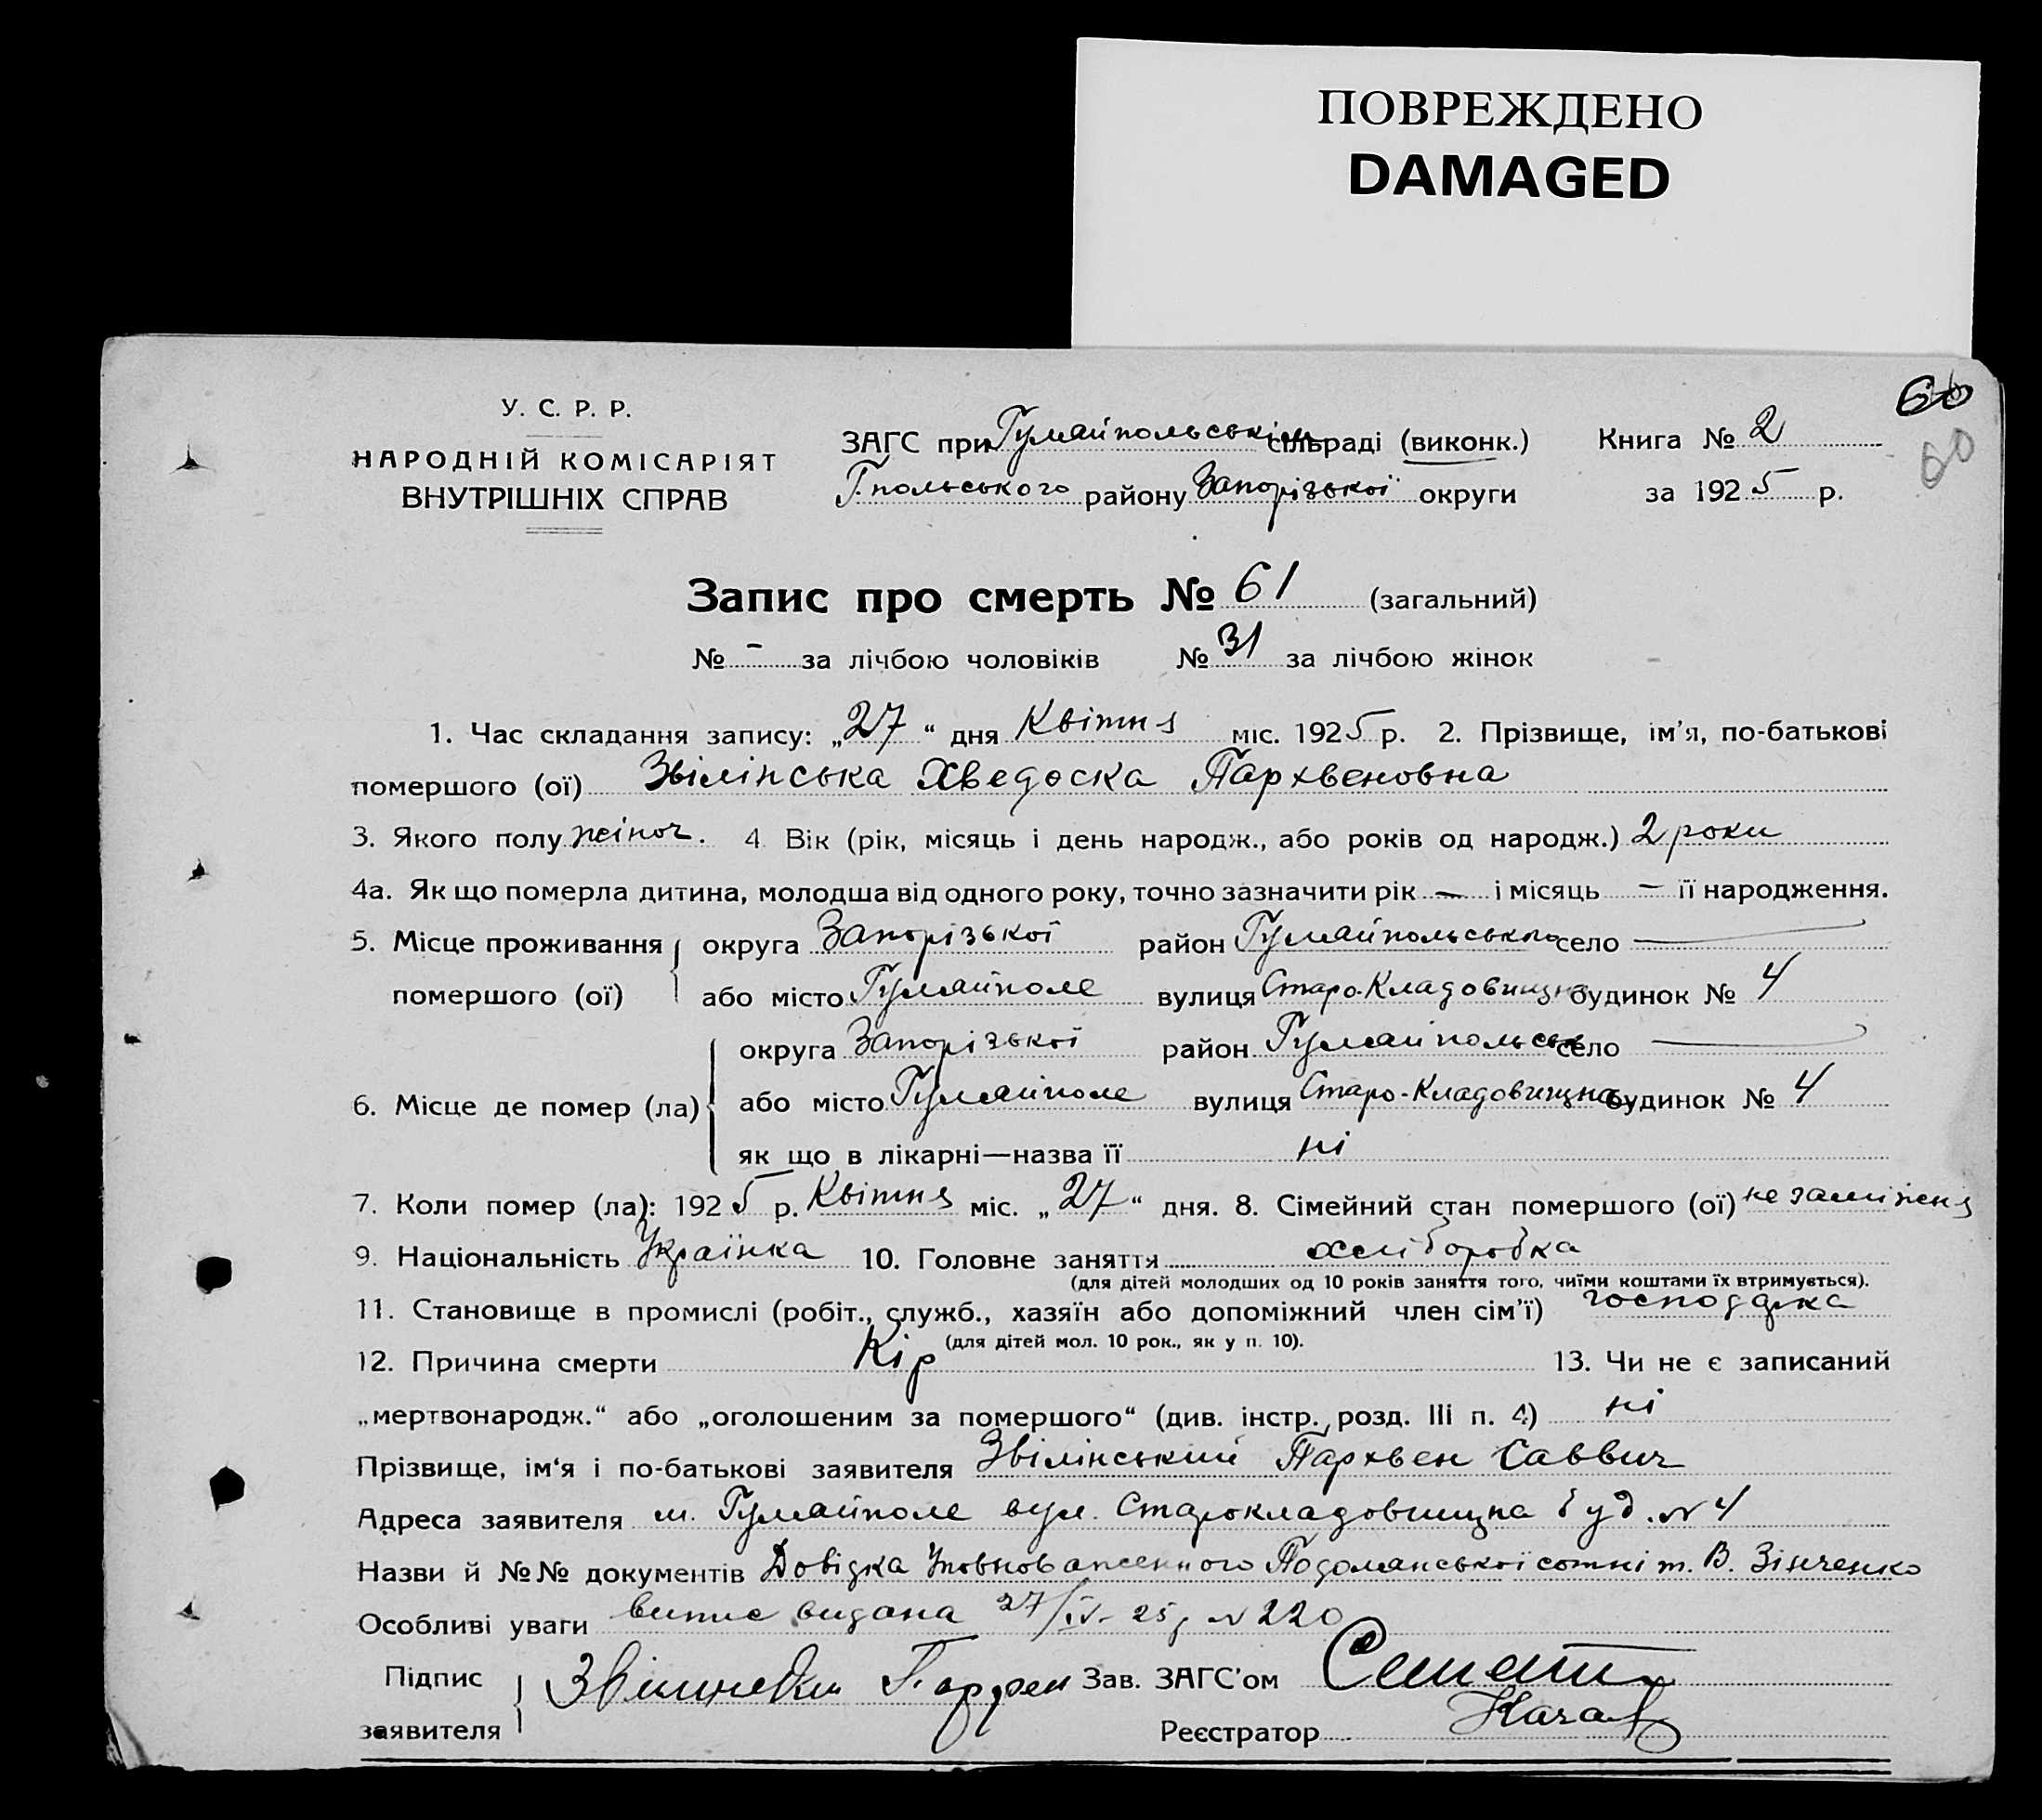 ПОВРЕЖДЕНО
DAMAGED
60
60
У. С. Р. Р.
НАРОДНІЙ КОМІСАРІЯТ
ВНУТРІШНІХ СПРАВ
ЗАГС при Гуляйпольськім сільраді (виконк.) Книга № 2
Г. польського району Запорізької округи за 1925 р.
Запис про смерть № 61 (загальний)
№ - за лічбою чоловіків № 31 за лічбою жінок
1. Час складання запису: „27“ дня Квітня міс. 1925 р. 2. Прізвище, ім'я, по-батькові
помершого (ої) Звілінська Хведоска Пархвеновна
3. Якого полу жіноч. 4 Вік (рік, місяць і день народж., або років од народж.) 2 роки
4а. Як що померла дитина, молодша від одного року, точно зазначити рік — і місяць — її народження.
5. Місце проживання округа Запорізької район Гуляйпольського село —
помершого (ої) або місто Гуляйполе вулиця Старо-Кладовищна будинок № 4
округа Запорізької район Гуляйпольськ село —
6. Місце де помер (ла) або місто Гуляйполе вулиця Старо-Кладовищна будинок № 4
як що в лікарні—назва її ні
7. Коли помер (ла): 1925 р. Квітня міс. „27“ дня. 8. Сімейний стан помершого (ої) не заміжня
9. Національність Українка 10. Головне заняття хліборобка
(для дітей молодших од 10 років заняття того, чиїми коштами їх втримується).
11. Становище в промислі (робіт., служб., хазяїн або допоміжний член сім'ї) господарка
(для дітей мол. 10 рок., як у п. 10).
12. Причина смерти Кір 13. Чи не є записаний
„мертвонародж.“ або „оголошеним за помершого“ (див. інстр. розд. III п. 4) ні
Прізвище, ім'я і по-батькові заявителя Звілінський Пархвен Саввич
Адреса заявителя м. Гуляйполе вул. Старокладовищна буд. № 4
Назви й №№ документів Довідка Уповноваженного Подолянської сотні т. В. Зінченко
Особливі уваги випис видана 27/IV-25 р № 220
Підпис Зав. ЗАГС'ом
заявителя Реєстратор